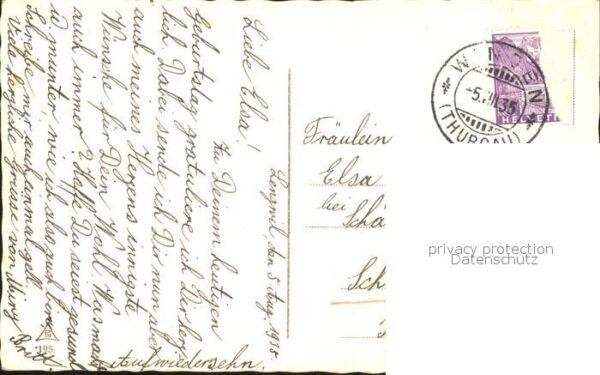 Lengwil, den 5. Aug. 1935
Liebe Elsa!
Zu Deinem heutigen
Geburtstag gratuliere ich Dir herz-
lich. Dabei sende ich Dir nun aber
auch meines Herzens innigste
Wünsche für Dein Wohl. Was macht
auch immer? Hoffe Du seiest gesund
u munter, wie ich also auch
Schreibe mir auch einmal gell.
Viele herzliche Grüsse von
Aufwiedersehn.
195
Fräulein
Elsa
bei
Schä
Sch
WINDEN
-5.VIII.35
(THURGAU)
HELVETI
privacy protection
Datenschutz